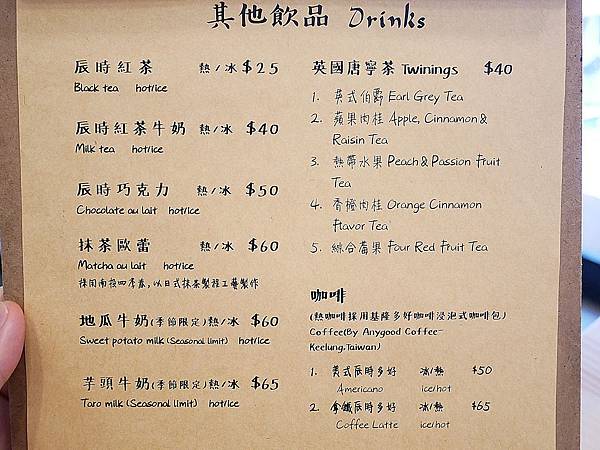 其他飲品 Drinks
辰時紅茶 熱/冰 $25
Black tea hot/ice
辰時紅茶牛奶 熱/冰 $40
Milk tea hot/ice
辰時巧克力 熱/冰 $50
Chocolate au lait hot/ice
抹茶歐蕾 熱/冰 $60
Matcha au lait hot/ice
採用南投四季春,以日式抹茶製程工藝製作
地瓜牛奶(季節限定)熱/冰 $60
Sweet potato milk (Seasonal limit) hot/ice
芋頭牛奶(季節限定)熱/冰 $65
Taro milk (Seasonal limit) hot/ice
英國唐寧茶 Twinings $40
1. 英式伯爵 Earl Grey Tea
2. 蘋果肉桂 Apple, Cinnamon &
Raisin Tea
3. 熱帶水果 Peach & Passion Fruit
Tea
4. 香橙肉桂 Orange Cinnamon
Flavor Tea
5. 綜合莓果 Four Red Fruit Tea
咖啡
(熱咖啡採用基隆多好咖啡浸泡式咖啡包)
Coffee(By Anygood Coffee-
Keelung,Taiwan)
1. 美式辰時多好 冰/熱 $50
Americano ice/hot
2. 拿鐵辰時多好 冰/熱 $65
Coffee Latte ice/hot